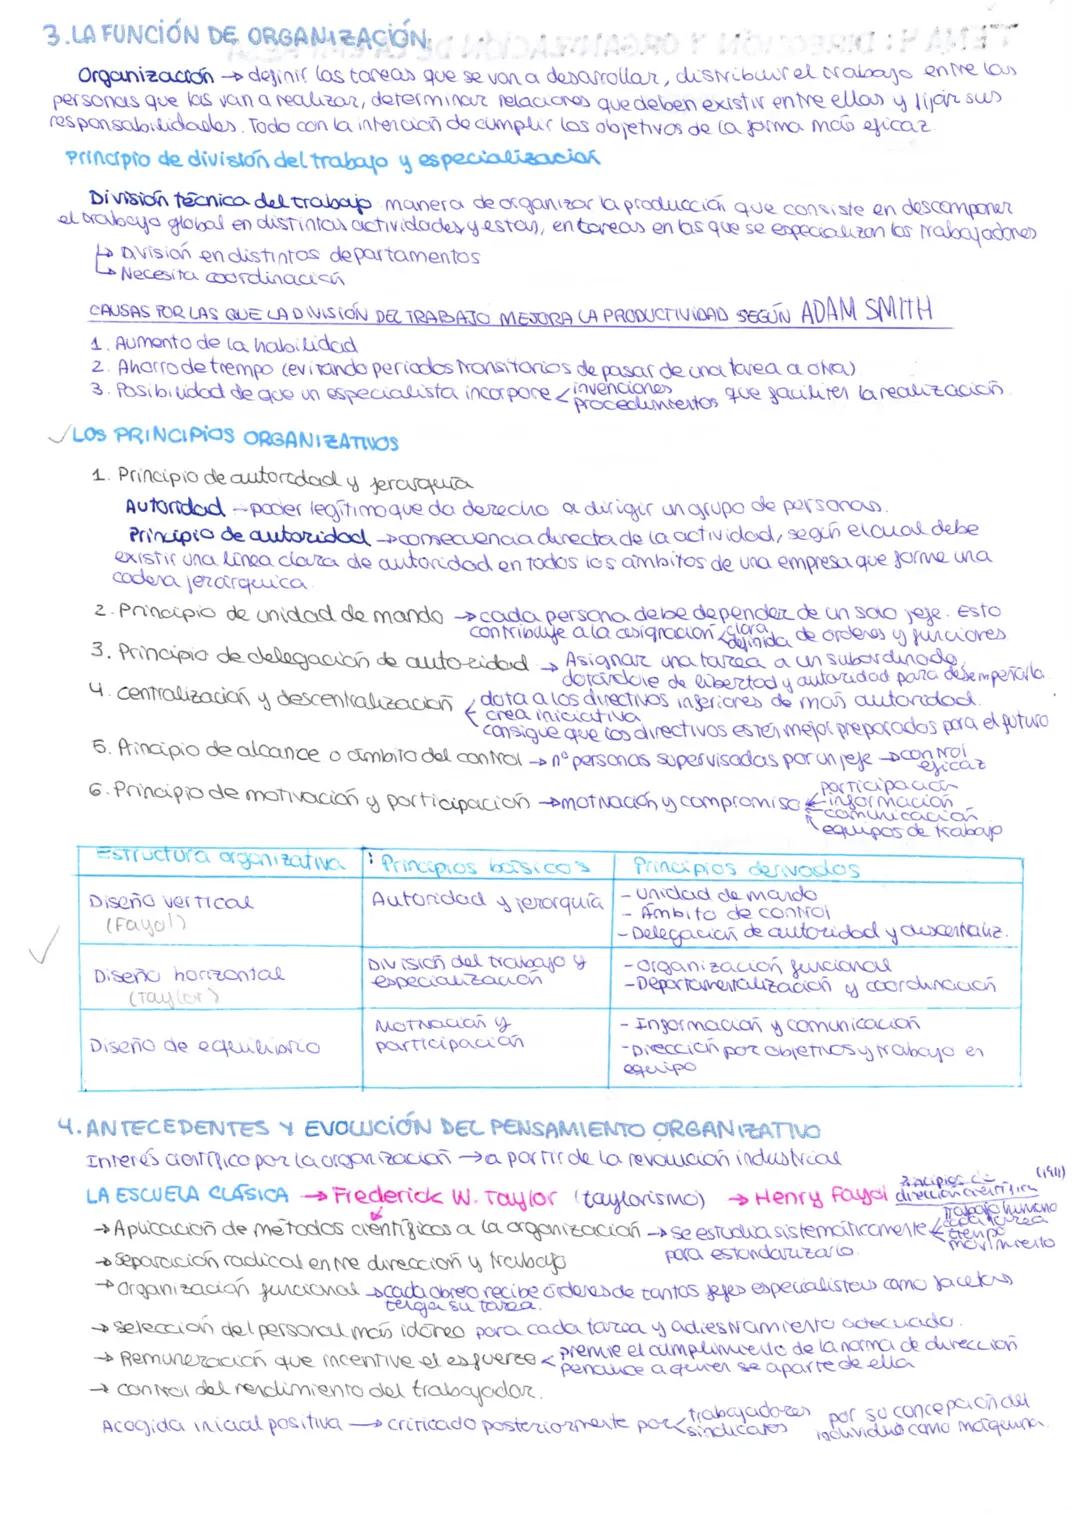 3. LA FUNCIÓN DE ORGANIZACIÓN.
Organización → definir las tareas que se van a desarrollar, distribuir el trabajo entre las
personas que las van a realizar, determinar relaciones que deben existir entre ellas y fijar sus
responsabilidades. Todo con la intención de cumplir los objetivos de la forma más eficaz.
Principio de división del trabajo y especialización
División técnica del trabajo manera de organizar la producción que consiste en descomponer
el trabajo global en distintas actividades y estas, en tareas en las que se especializan los trabajadores
↳ División en distintos departamentos
↳ Necesita coordinación
CAUSAS POR LAS QUE LA DIVISIÓN DEL TRABAJO MEJORA LA PRODUCTIVIDAD SEGÚN ADAM SMITH
1. Aumento de la habilidad
2. Ahorro de tiempo (evitando periodos transitorios de pasar de una tarea a otra)
3. Posibilidad de que un especialista incorpore < invenciones procedimientos que faciliten la realización
✓ LOS PRINCIPIOS ORGANIZATIVOS
1. Principio de autoridad y jerarquía
Autoridad → poder legítimo que da derecho a dirigir un grupo de personas.
Principio de autoridad → consecuencia directa de la actividad, según el cual debe
existir una línea clara de autoridad en todos los ámbitos de una empresa que forme una
cadena jerárquica.
2. Principio de unidad de mando → cada persona debe depender de un solo jefe. Esto
contribuye a la asignación < clara definida de órdenes y funciones
3. Principio de delegación de autoridad → Asignar una tarea a un subordinado,
dotándole de libertad y autoridad para desempeñarla
4. Centralización y descentralización < dota a los directivos inferiores de más autoridad.
crea iniciativa
consigue que los directivos estén mejor preparados para el futuro
5. Principio de alcance o ámbito del control → nº personas supervisadas por un jefe → control eficaz
6. Principio de motivación y participación → motivación y compromiso < participación
información
comunicación
equipos de trabajo
Estructura organizativa : Principios básicos Principios derivados
Diseño vertical (Fayol) Autoridad y jerarquía - Unidad de mando
- Ámbito de control
- Delegación de autoridad y descentraliz.
Diseño horizontal (Taylor) División del trabajo y especialización - Organización funcional
- Departamentalización y coordinación
Diseño de equilibrio Motivación y participación - Información y comunicación
- Dirección por objetivos y trabajo en
equipo
4. ANTECEDENTES Y EVOLUCIÓN DEL PENSAMIENTO ORGANIZATIVO
Interés científico por la organización → a partir de la revolución industrial
LA ESCUELA CLÁSICA → Frederick W. Taylor (taylorismo) → Henry Fayol Principios de dirección científica (1911)
→ Aplicación de métodos científicos a la organización → se estudia sistemáticamente < trabajo humano
cada tarea
tiempo
movimiento
para estandarizarlo.
→ Separación radical entre dirección y trabajo
→ Organización funcional → cada obrero recibe órdenes de tantos jefes especialistas como facetas
tenga su tarea.
→ Selección del personal más idóneo para cada tarea y adiestramiento adecuado.
→ Remuneración que incentive el esfuerzo < premie el cumplimiento de la norma de dirección
penalice a quien se aparte de ella
→ Control del rendimiento del trabajador.
Acogida inicial positiva → criticado posteriormente por < trabajadores sindicatos por su concepción del
individuo como máquina.